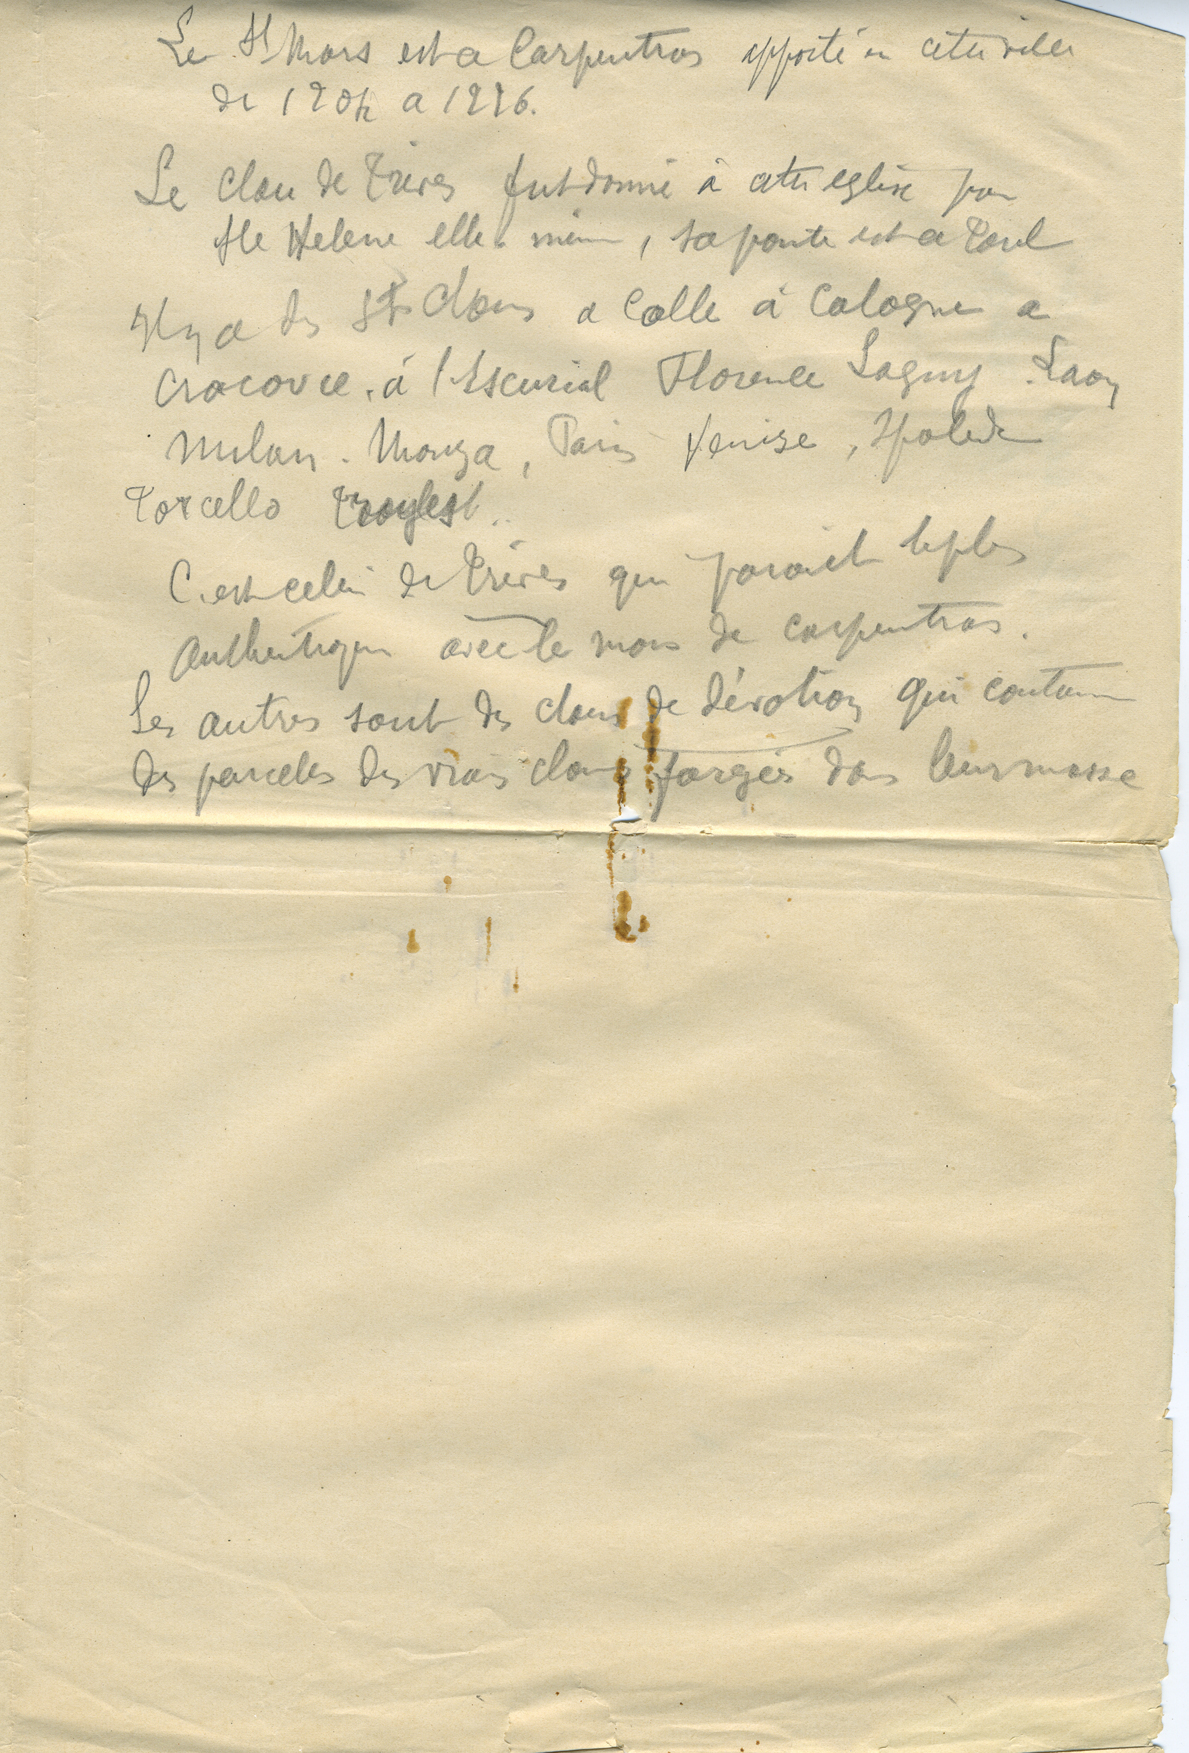 Le St Mors est a Carpentras apporté en cette ville
de 1204 a 1226.
Le Clou de Trèves fut donné à cette eglise par
Ste Helene elle même, sa pointe est a Toul
Il y a des Sts Clous a Colle à Cologne a
Cracovie. à l'Escurial Florence Lagny. Laon
Milan. Monza, Paris Venise, Spolede
Torcello
C'est celui de Trèves qui parait le plus
Authentique avec le mors de carpentras.
Les autres sont des clous de dévotion qui contenu
des parceles des vrais clous forgés dans leur masse